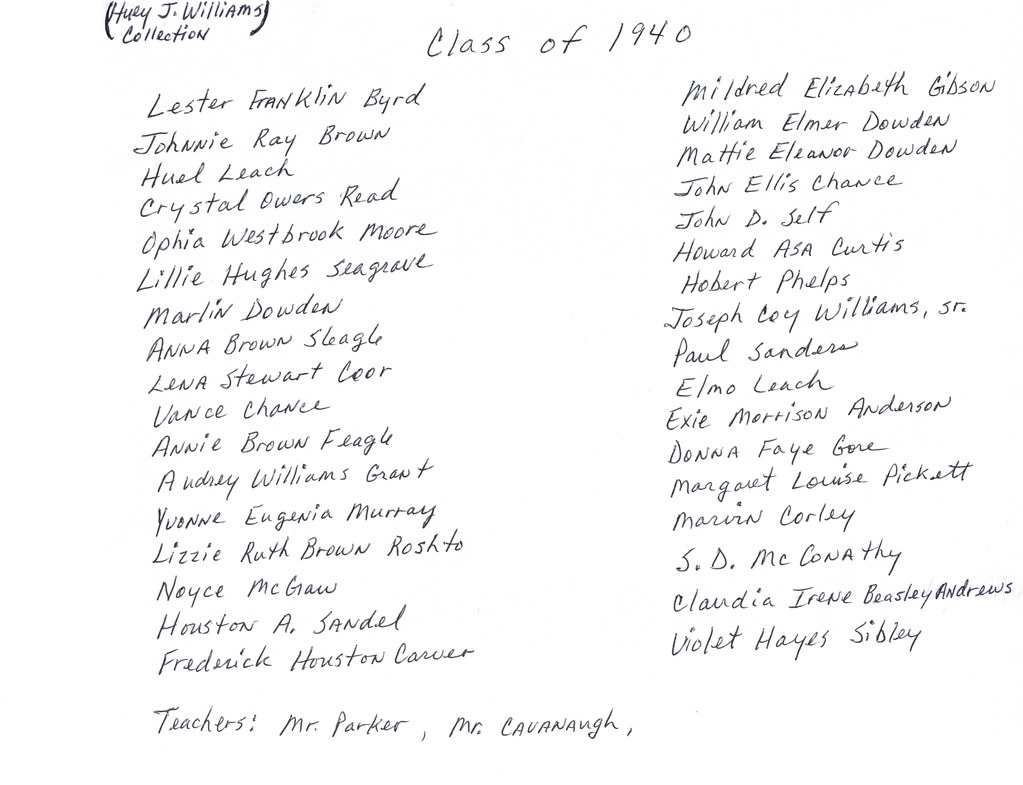 (Huey J. Williams)
Collection
Class of 1940
Lester Franklin Byrd
Johnnie Ray Brown
Huel Leach
Crystal Owers Read
Ophia Westbrook Moore
Lillie Hughes Seagrave
Marlin Dowden
Anna Brown Sleagle
Lena Stewart Coor
Vance Chance
Annie Brown Feagle
Audrey Williams Grant
Yvonne Eugenia Murray
Lizzie Ruth Brown Roshto
Noyce McGraw
Houston A. Sandel
Frederick Houston Carver
Mildred Elizabeth Gibson
William Elmer Dowden
Mattie Eleanor Dowden
John Ellis Chance
John D. Self
Howard Asa Curtis
Hobert Phelps
Joseph Coy Williams, Sr.
Paul Sanders
Elmo Leach
Exie Morrison Anderson
Donna Faye Gore
Margaret Louise Pickett
Marvin Corley
S. D. McConathy
Claudia Irene Beasley Andrews
Violet Hayes Sibley
Teachers: Mr. Parker, Mr. Cavanaugh,